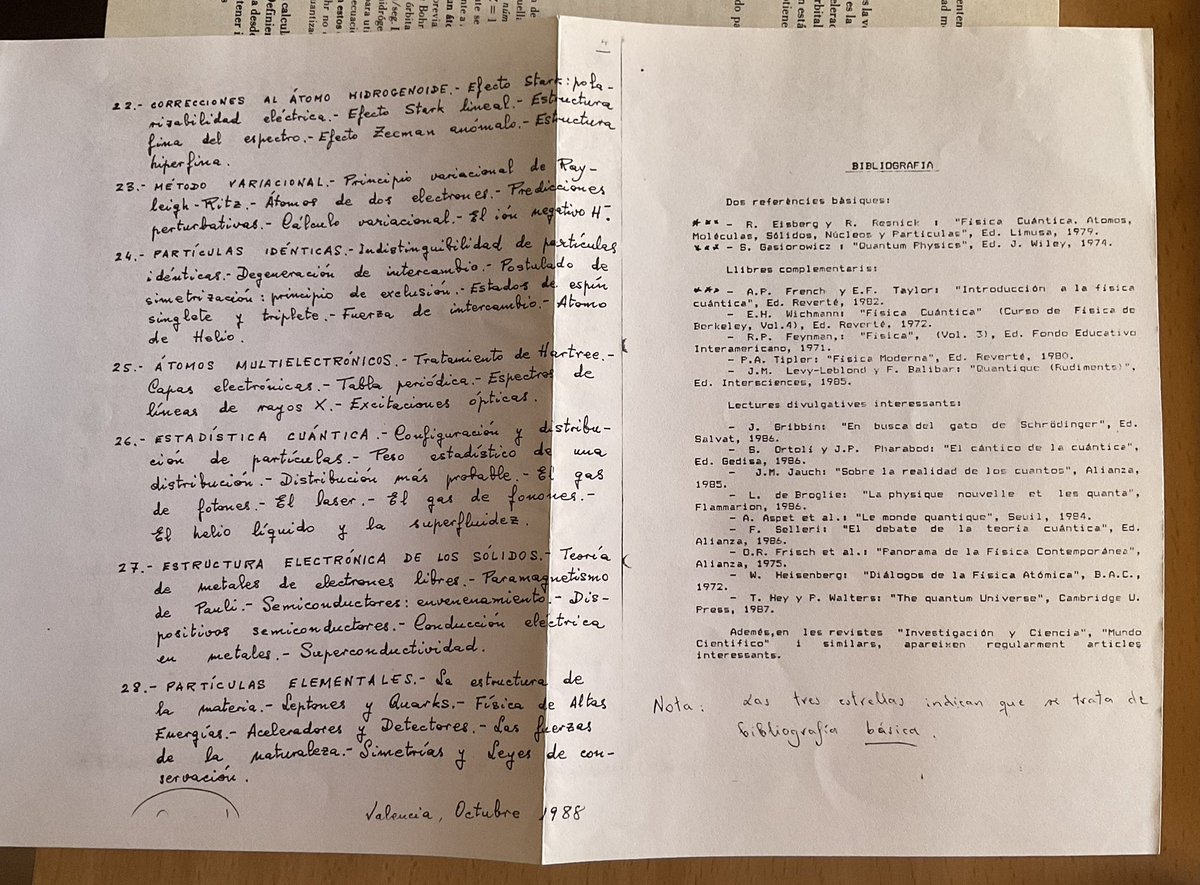 4
22.- CORRECCIONES AL ÁTOMO HIDROGENOIDE.- Efecto Stark: pola-
rizabilidad eléctrica.- Efecto Stark lineal.- Estructura
fina del espectro.- Efecto Zeeman anómalo.- Estructura
hiperfina.
23.- MÉTODO VARIACIONAL.- Principio variacional de Ray-
leigh-Ritz.- Átomos de dos electrones.- Predicciones
perturbativas.- Cálculo variacional.- El ión negativo H⁻.
24.- PARTÍCULAS IDÉNTICAS.- Indistinguibilidad de partículas
idénticas.- Degeneración de intercambio.- Postulado de
simetrización: principio de exclusión.- Estados de espín
singlote y triplete.- Fuerza de intercambio.- Átomo
de Helio.
25.- ÁTOMOS MULTIELECTRÓNICOS.- Tratamiento de Hartree.-
Capas electrónicas.- Tabla periódica.- Espectros de
líneas de rayos X.- Excitaciones ópticas.
26.- ESTADÍSTICA CUÁNTICA.- Configuración y distribu-
ción de partículas.- Peso estadístico de una
distribución.- Distribución más probable.- El gas
de fotones.- El laser.- El gas de fonones.-
El helio líquido y la superfluidez.
27.- ESTRUCTURA ELECTRÓNICA DE LOS SÓLIDOS.- Teoría
de metales de electrones libres.- Paramagnetismo
de Pauli.- Semiconductores: envenenamiento.- Dis-
positivos semiconductores.- Conducción eléctrica
en metales.- Superconductividad.
28.- PARTÍCULAS ELEMENTALES.- La estructura de
la materia.- Leptones y Quarks.- Física de Altas
Energías.- Aceleradores y Detectores.- Las fuerzas
de la naturaleza.- Simetrías y Leyes de con-
servación.
Valencia, Octubre 1988
BIBLIOGRAFIA
Dos referències bàsiques:
*** - R. Eisberg y R. Resnick : "Física Cuántica. Atomos,
Moléculas, Sólidos, Núcleos y Partículas", Ed. Limusa, 1979.
*** - S. Gasiorowicz : "Quantum Physics", Ed. J. Wiley, 1974.
Llibres complementaris:
*** - A.P. French y E.F. Taylor: "Introducción a la física
cuántica", Ed. Reverté, 1982.
- E.H. Wichmann: "Física Cuántica" (Curso de Física de
Berkeley, Vol.4), Ed. Reverté, 1972.
- R.P. Feynman,: "Física", (Vol. 3), Ed. Fondo Educativo
Interamericano, 1971.
- P.A. Tipler: "Física Moderna", Ed. Reverté, 1980.
- J.M. Levy-Leblond y F. Balibar: "Quantique (Rudiments)",
Ed. Intersciences, 1985.
Lectures divulgatives interessants:
- J. Gribbin: "En busca del gato de Schrödinger", Ed.
Salvat, 1986.
- S. Ortoli y J.P. Pharabod: "El cántico de la cuántica",
Ed. Gedisa, 1986.
- J.M. Jauch: "Sobre la realidad de los cuantos", Alianza,
1985.
- L. de Broglie: "La physique nouvelle et les quanta",
Flammarion, 1986.
- A. Aspet et al.: "Le monde quantique", Seuil, 1984.
- F. Selleri: "El debate de la teoría cuántica", Ed.
Alianza, 1986.
- O.R. Frisch et al.: "Panorama de la Física Contemporánea",
Alianza, 1975.
- W. Heisenberg: "Diálogos de la Física Atómica", B.A.C.,
1972.
- T. Hey y P. Walters: "The quantum Universe", Cambridge U.
Press, 1987.
Además,en les revistes "Investigación y Ciencia", "Mundo
Científico" i similars, apareixen regularment articles
interessants.
Nota: Las tres estrellas indican que se trata de
bibliografía básica.